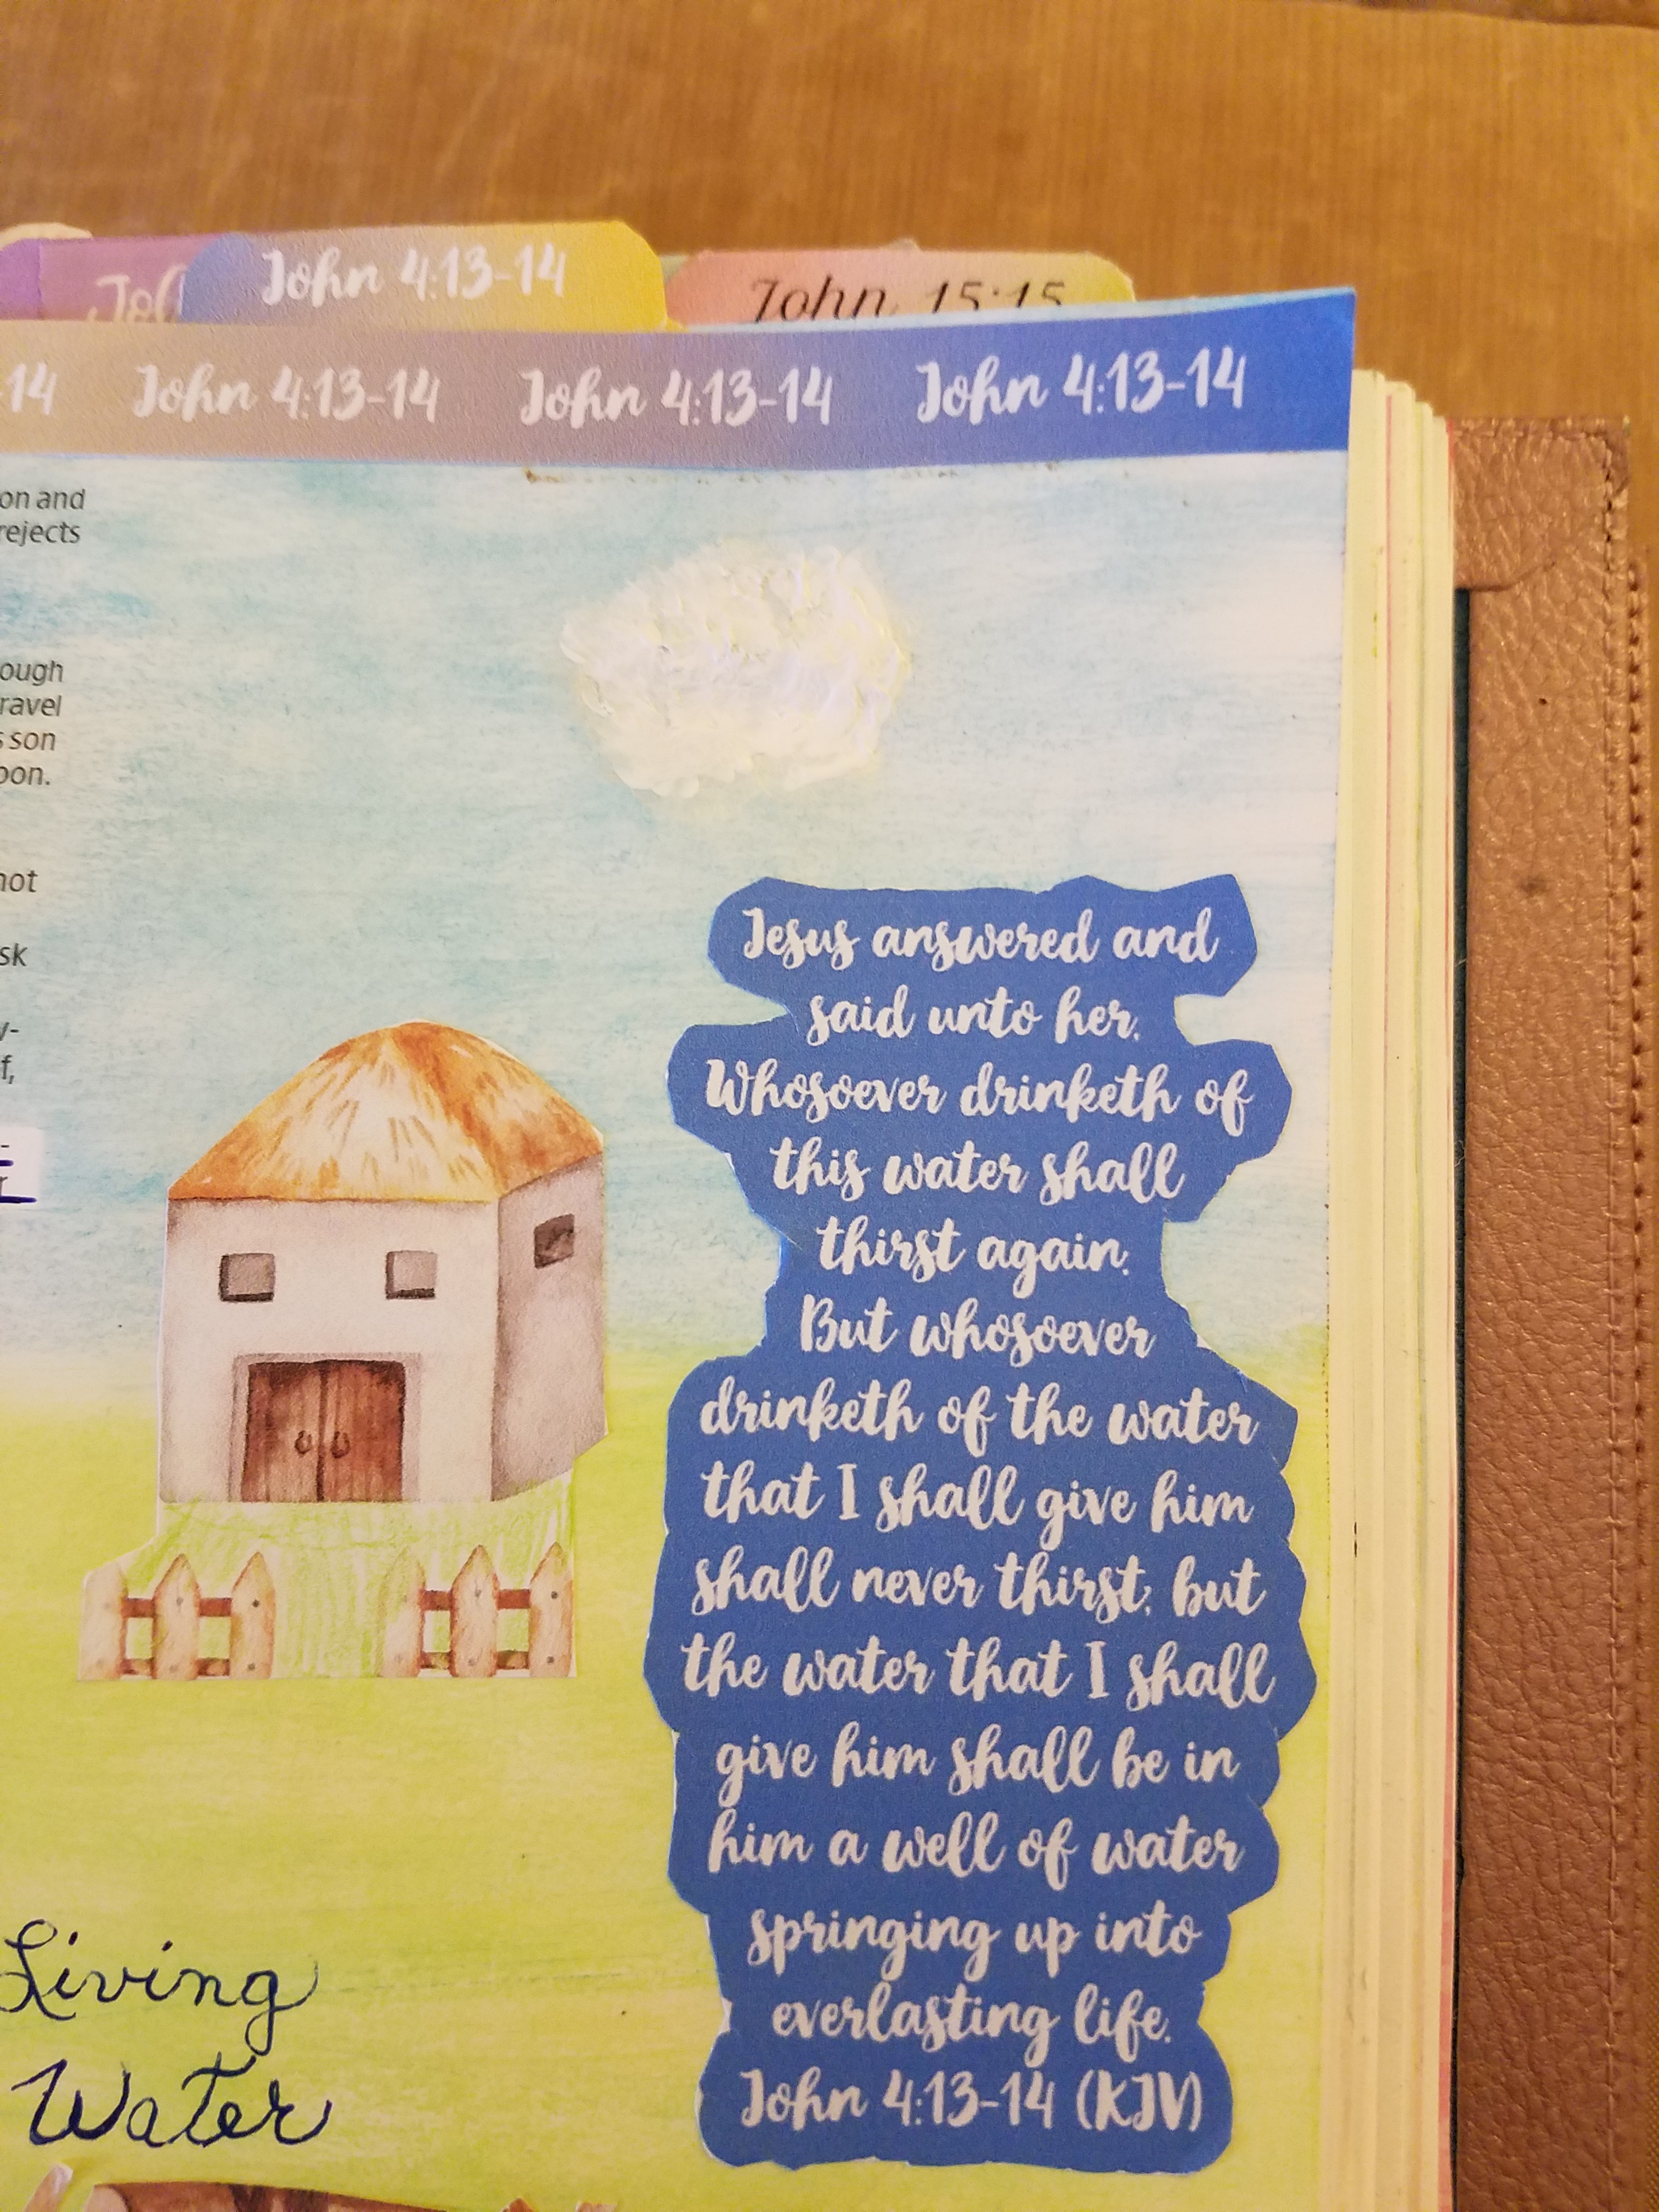 John 4:13-14
John 15:15
-14 John 4:13-14 John 4:13-14 John 4:13-14
on and
rejects
ough
ravel
s son
oon.
not
sk
y-
f,
Jesus answered and
said unto her,
Whosoever drinketh of
this water shall
thirst again:
But whosoever
drinketh of the water
that I shall give him
shall never thirst; but
the water that I shall
give him shall be in
him a well of water
springing up into
everlasting life.
John 4:13-14 (KJV)
Living
Water